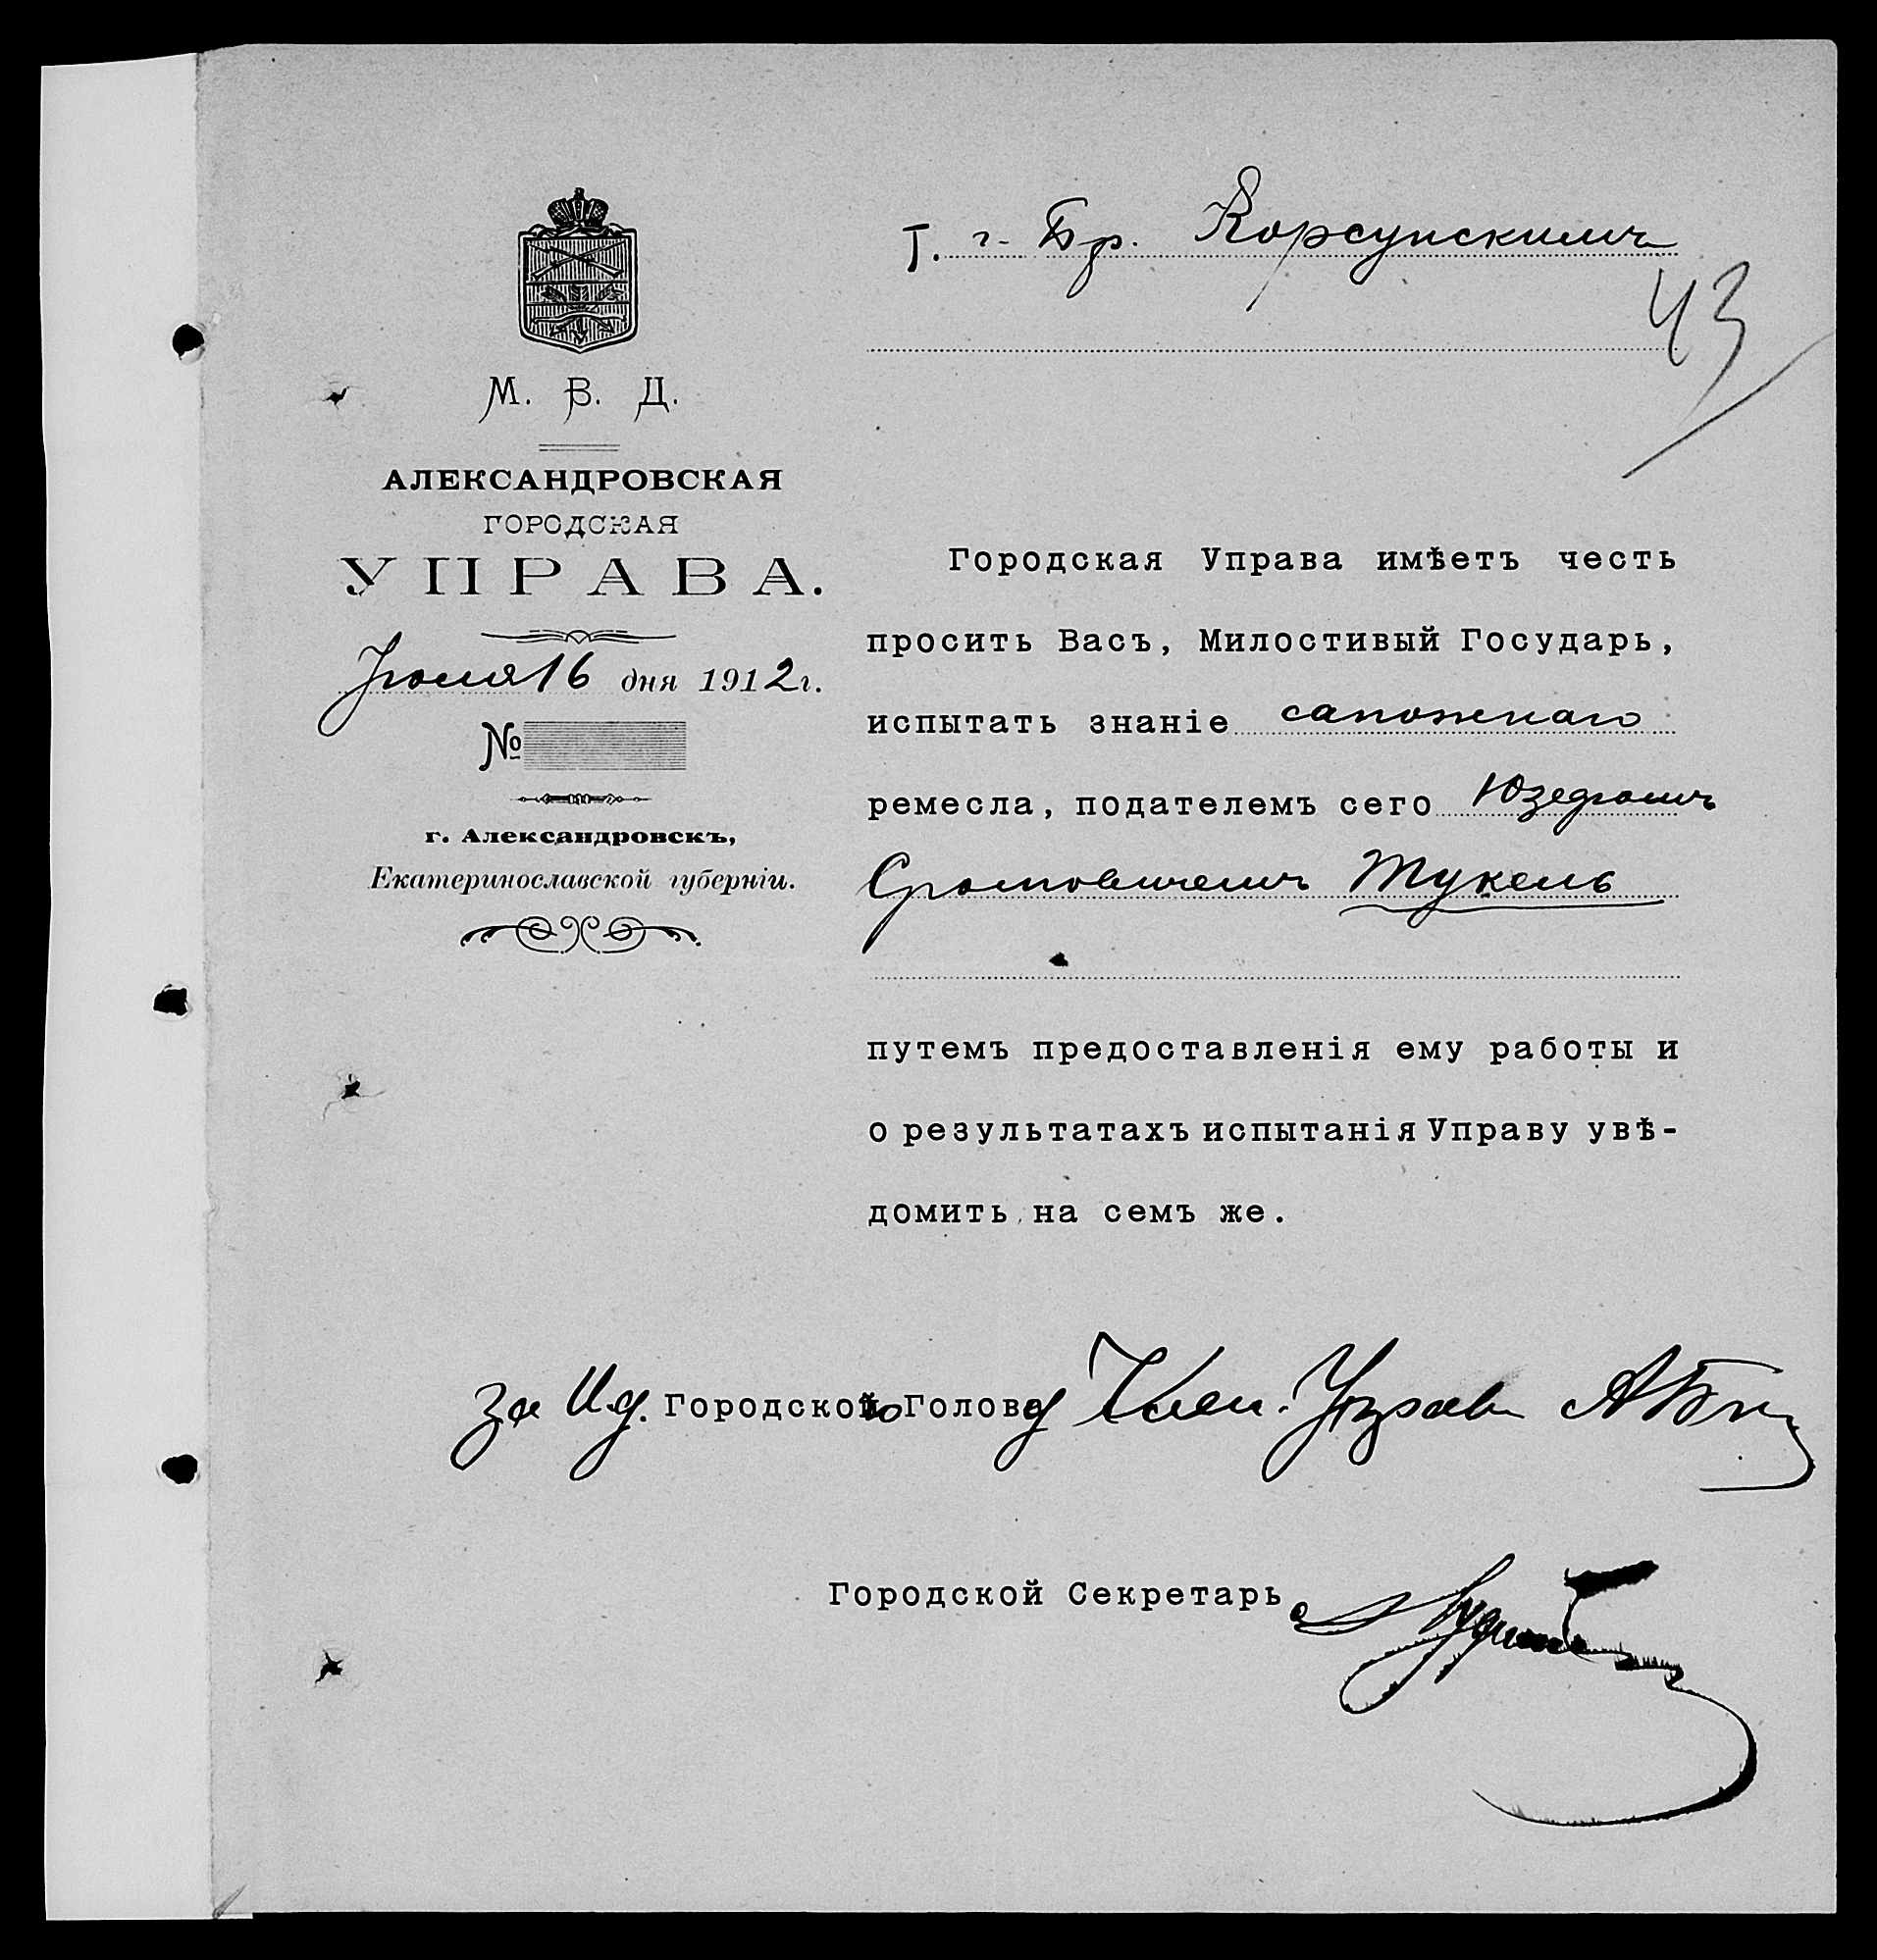 Г. г. Бр. Корсунскимъ
43
М. В. Д.
АЛЕКСАНДРОВСКАЯ
ГОРОДСКАЯ
УПРАВА.
16 дня 1912 г.
№
г. Александровскъ,
Екатеринославской губерніи.
Городская Управа имѣетъ честь
просить Васъ, Милостивый Государь,
испытать знаніе сапожнаго
ремесла, подателемъ сего
Тукель
путемъ предоставленія ему работы и
о результатахъ испытанія Управу увѣ-
домить на семъ же.
За И.д. Городского Голову Член. Управы
Городской Секретарь